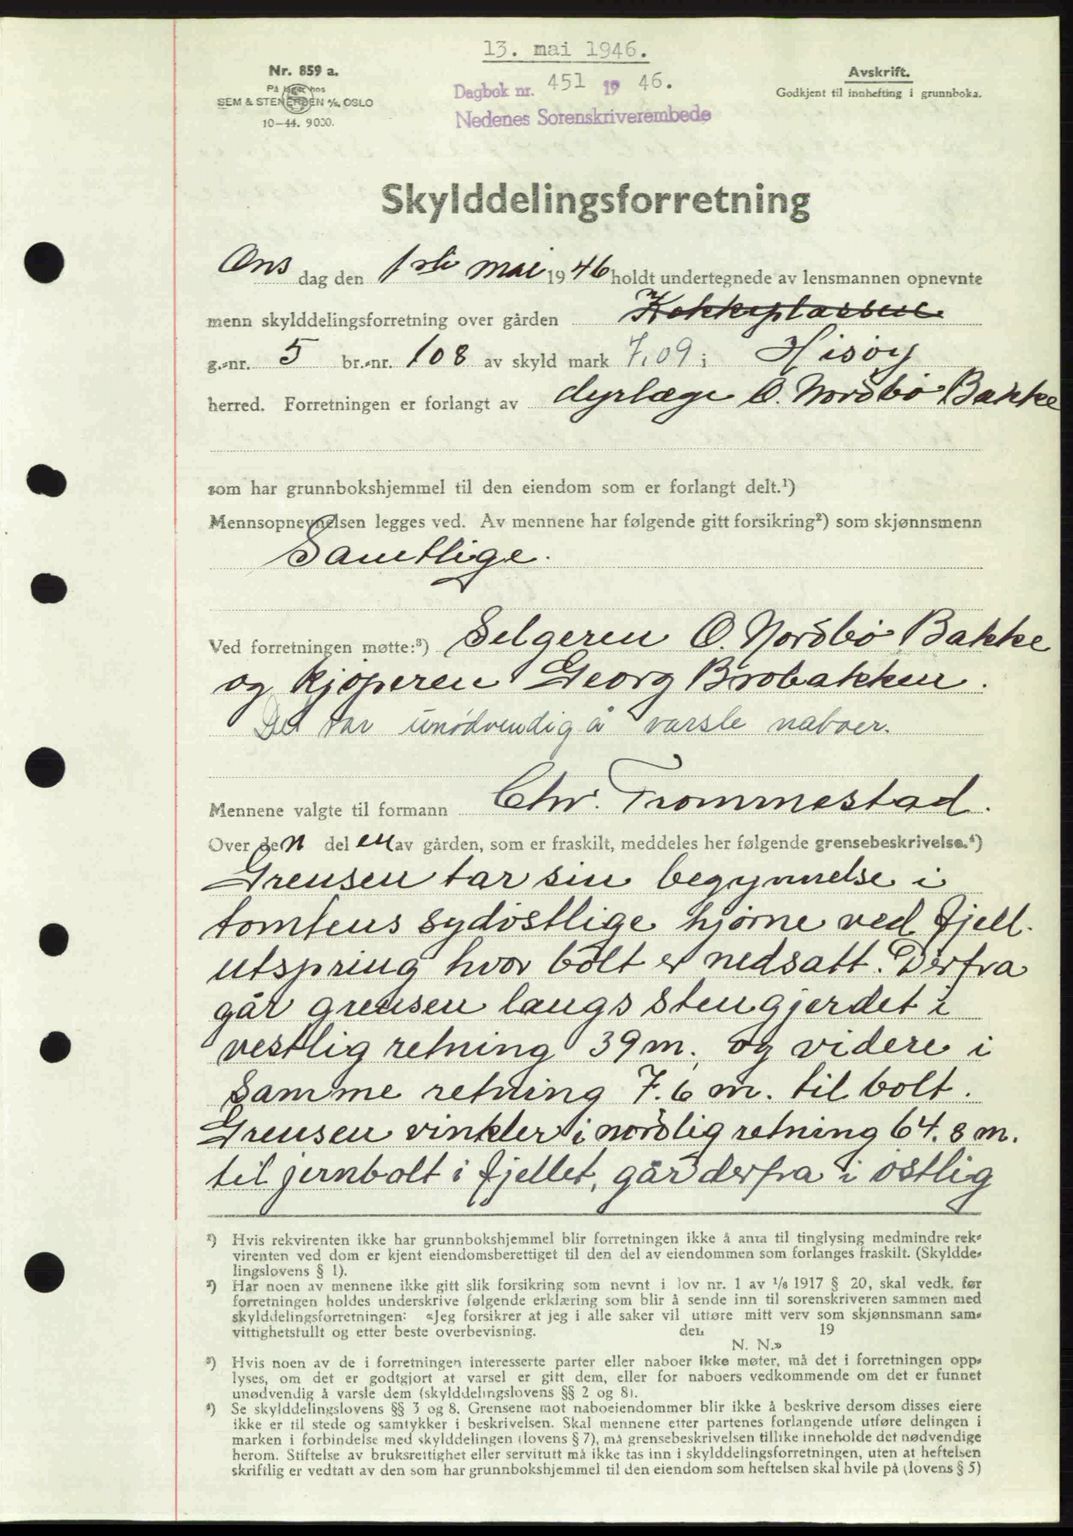 13. mai 1946.
Nr. 859 a.
På lager hos
SEM & STENERSEN A/S, OSLO
10-44. 9000.
Dagbok nr. 451 19 46.
Nedenes Sorenskriverembede
Avskrift.
Godkjent til innhefting i grunnboka.
Skylddelingsforretning
Ons dag den 1ste mai 1946 holdt undertegnede av lensmannen opnevnte
menn skylddelingsforretning over gården Kokkeplassen
g.-nr. 5 br.-nr. 108 av skyld mark 7,09 i Hisøy
herred. Forretningen er forlangt av dyrlæge O. Nordbö Bakke
som har grunnbokshjemmel til den eiendom som er forlangt delt.¹)
Mennsopnevnelsen legges ved. Av mennene har følgende gitt forsikring²) som skjønnsmenn
Samtlige.
Ved forretningen møtte:³) Selgeren O. Nordbö Bakke
og kjöperen Georg Brobakken.
Det var unödvendig å varsle naboer.
Mennene valgte til formann Chr. Trommestad.
Over den del en av gården, som er fraskilt, meddeles her følgende grensebeskrivelse.⁴)
Grensen tar sin begynnelse i
tomtens sydöstlige hjörne ved fjell-
utspring hvor bolt er nedsatt. Derfra
går grensen langs stengjerdet i
vestlig retning 39 m. og videre i
samme retning 7.6 m. til bolt.
Grensen vinkler i nordlig retning 64.8 m.
til jernbolt i fjellet, går derfra i östlig
¹) Hvis rekvirenten ikke har grunnbokshjemmel blir forretningen ikke å anta til tinglysing medmindre rek-
virenten ved dom er kjent eiendomsberettiget til den del av eiendommen som forlanges fraskilt. (Skyldde-
lingslovens § 1).
²) Har noen av mennene ikke gitt slik forsikring som nevnt i lov nr. 1 av 1/6 1917 § 20, skal vedk. før
forretningen holdes underskrive følgende erklæring som blir å sende inn til sorenskriveren sammen med
skylddelingsforretningen: «Jeg forsikrer at jeg i alle saker vil utføre mitt verv som skjønnsmann sam-
vittighetsfullt og etter beste overbevisning. den 19
N. N.»
³) Hvis noen av de i forretningen interesserte parter eller naboer ikke møter, må det i forretningen opp-
lyses, om det er godtgjort at varsel er gitt dem, eller for naboers vedkommende om det er funnet
unødvendig å varsle dem (skylddelingslovens §§ 2 og 8).
⁴) Se skylddelingslovens §§ 3 og 8. Grensene mot naboeiendommer blir ikke å beskrive dersom disses eiere
ikke er til stede og samtykker i beskrivelsen. Skal mennene etter partenes forlangende utføre delingen i
marken i forbindelse med skylddelingen (lovens § 7), må grensebeskrivelsen tillike inneholde det nødvendige
herom. Stiftelse av bruksrettighet eller servitutt må ikke tas inn i skylddelingsforretningen, uten at heftelsen
skriftlig er vedtatt av den som har grunnbokshjemmel til den eiendom som heftelsen skal hvile på (lovens § 5)